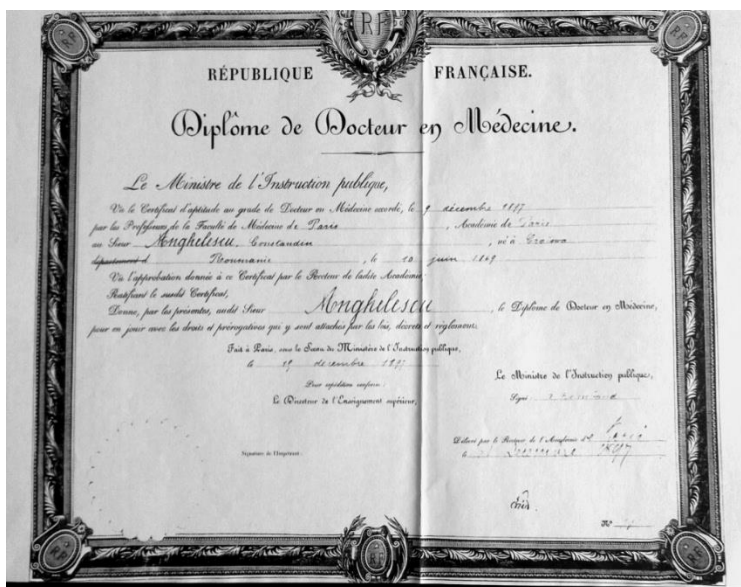 RF
RÉPUBLIQUE FRANÇAISE.
Diplôme de Docteur en Médecine.
Le Ministre de l'Instruction publique,
Vu le Certificat d'aptitude au grade de Docteur en Médecine accordé, le 9 décembre 1897
par les Professeurs de la Faculté de Médecine de Paris, Académie de Paris
au Sieur Anghelescu, Constandin, né à Craiova
département d Roumanie, le 10 juin 1869
Vu l'approbation donnée à ce Certificat par le Recteur de ladite Académie;
Ratifiant le susdit Certificat,
Donne, par les présentes, audit Sieur Anghelescu, le Diplôme de Docteur en Médecine,
pour en jouir avec les droits et prérogatives qui y sont attachés par les lois, décrets et règlements.
Fait à Paris, sous le Sceau du Ministère de l'Instruction publique,
le 29 décembre 1897
Pour expédition conforme:
Le Directeur de l'Enseignement supérieur,
Le Ministre de l'Instruction publique,
Signé
Signature de l'Impétrant:
Délivré par le Recteur de l'Académie d Paris
le 1897
N°
RF
RF
RF
RF